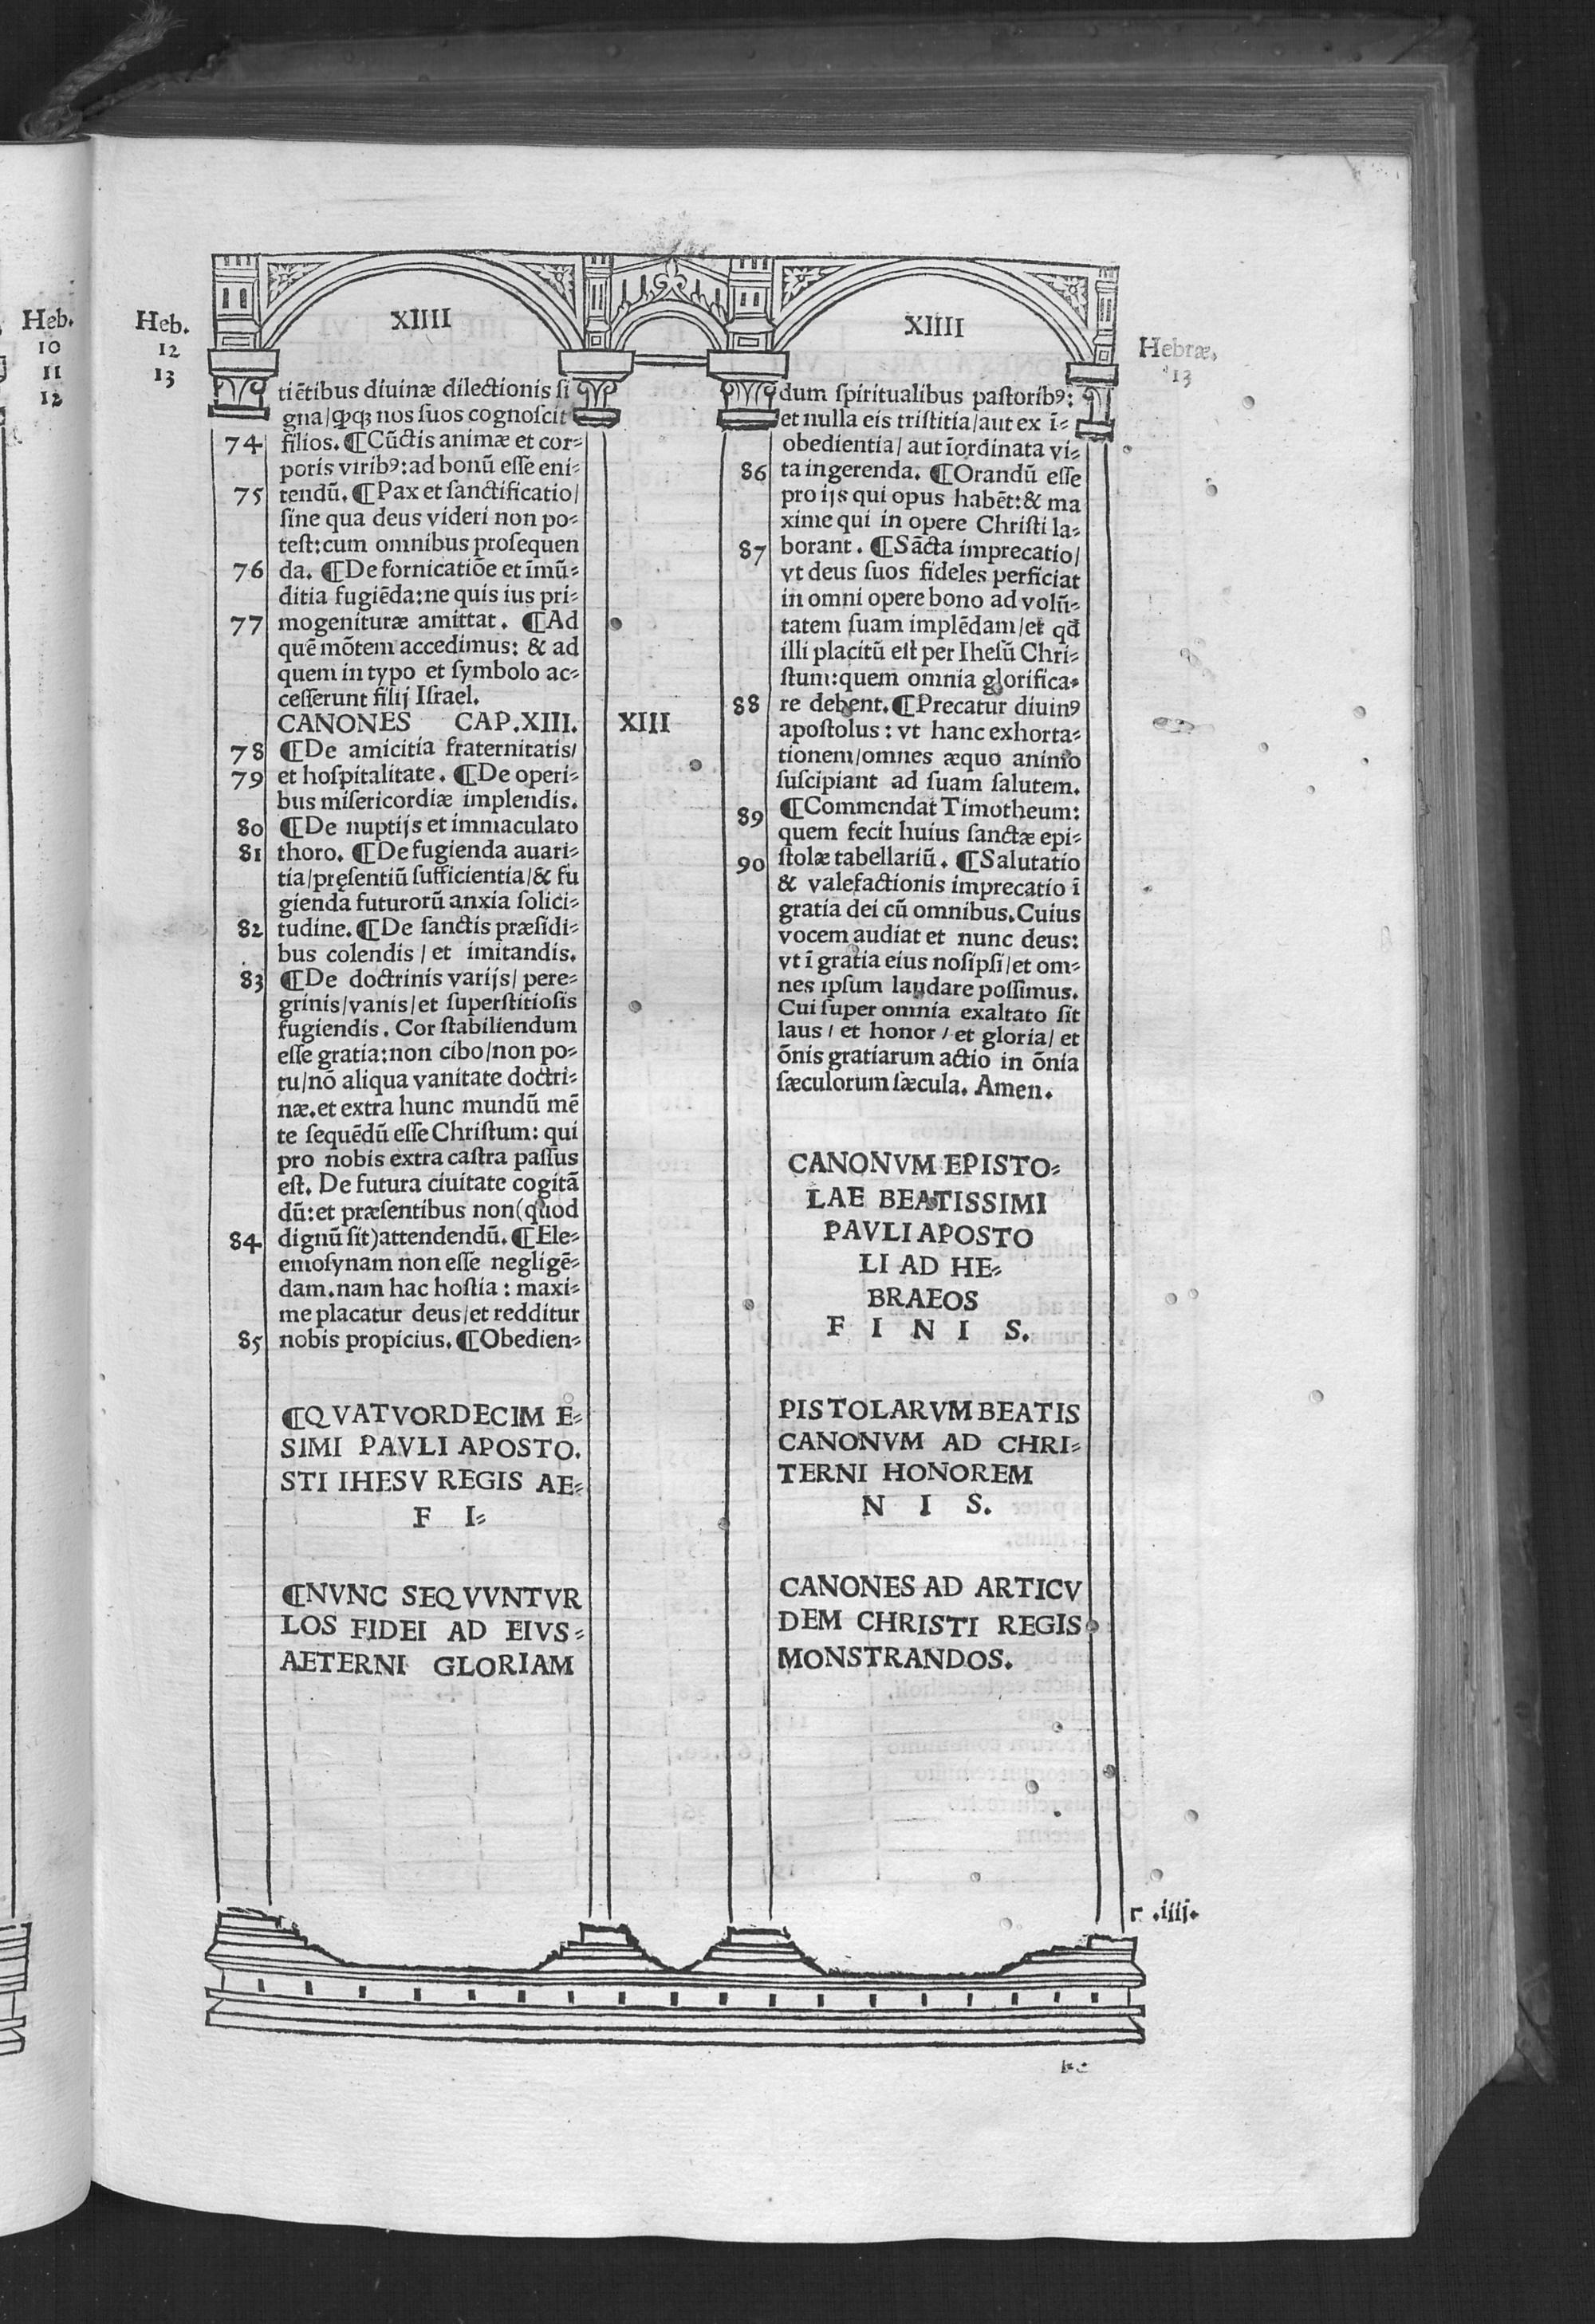 Heb.
10
11
12
Heb.
12
13
XIIII
tiētibus diuinæ dilectionis ſi
gna/ꝙqꝫ nos ſuos cognoſcit
74 filios. ¶Cūctis animæ et cor⸗
poris viribꝰ: ad bonū eſſe eni⸗
75 tendū. ¶Pax et ſanctificatio/
ſine qua deus videri non po⸗
teſt: cum omnibus proſequen
76 da. ¶De fornicatiōe et īmū⸗
ditia fugiēda: ne quis ius pri⸗
77 mogenituræ amittat. ¶Ad
quē mōtem accedimus: & ad
quem in typo et ſymbolo ac⸗
ceſſerunt filij Iſrael.
CANONES CAP.XIII. XIII
78 ¶De amicitia fraternitatis/
79 et hoſpitalitate. ¶De operi⸗
bus miſericordiæ implendis.
80 ¶De nuptijs et immaculato
81 thoro. ¶De fugienda auari⸗
tia/pręſentiū ſufficientia/& fu
gienda futurorū anxia ſolici⸗
82 tudine. ¶De ſanctis præſidi⸗
bus colendis/ et imitandis.
83 ¶De doctrinis varijs/ pere⸗
grinis/vanis/et ſuperſtitioſis
fugiendis. Cor ſtabiliendum
eſſe gratia: non cibo/non po⸗
tu/nō aliqua vanitate doctri⸗
næ. et extra hunc mundū mē
te ſequēdū eſſe Chriſtum: qui
pro nobis extra caſtra paſſus
eſt. De futura ciuitate cogitā
dū: et præſentibus non (quod
84 dignū ſit) attendendū. ¶Ele⸗
emoſynam non eſſe negligē⸗
dam. nam hac hoſtia: maxi⸗
me placatur deus/et redditur
85 nobis propicius. ¶Obedien⸗
¶QVATVORDECIM E⸗
SIMI PAVLI APOSTO.
STI IHESV REGIS AE⸗
F I⸗
¶NVNC SEQVVNTVR
LOS FIDEI AD EIVS⸗
AETERNI GLORIAM
XIIII
Hebræ.
13
dum ſpiritualibus paſtoribꝰ:
et nulla eis triſtitia/aut ex ī⸗
obedientia/ aut īordinata vi⸗
86 ta ingerenda. ¶Orandū eſſe
pro ijs qui opus habēt: & ma
xime qui in opere Chriſti la⸗
87 borant. ¶Sācta imprecatio/
vt deus ſuos fideles perficiat
in omni opere bono ad volū⸗
tatem ſuam implēdam/et qđ
illi placitū eſt per Iheſū Chri⸗
ſtum: quem omnia glorifica⸗
88 re debent. ¶Precatur diuinꝰ
apoſtolus: vt hanc exhorta⸗
tionem/omnes æquo animo
ſuſcipiant ad ſuam ſalutem.
89 ¶Commendat Timotheum:
quem fecit huius ſanctæ epi⸗
90 ſtolæ tabellariū. ¶Salutatio
& valefactionis imprecatio ī
gratia dei cū omnibus. Cuius
vocem audiat et nunc deus:
vt ī gratia eius noſipſi/et om⸗
nes ipſum laudare poſſimus.
Cui ſuper omnia exaltato ſit
laus/ et honor/ et gloria/ et
ōnis gratiarum actio in ōnia
ſæculorum ſæcula. Amen.
CANONVM EPISTO⸗
LAE BEATISSIMI
PAVLI APOSTO
LI AD HE⸗
BRAEOS
F I N I S.
PISTOLARVM BEATIS
CANONVM AD CHRI⸗
TERNI HONOREM
N I S.
CANONES AD ARTICV
DEM CHRISTI REGIS
MONSTRANDOS.
.iiij.